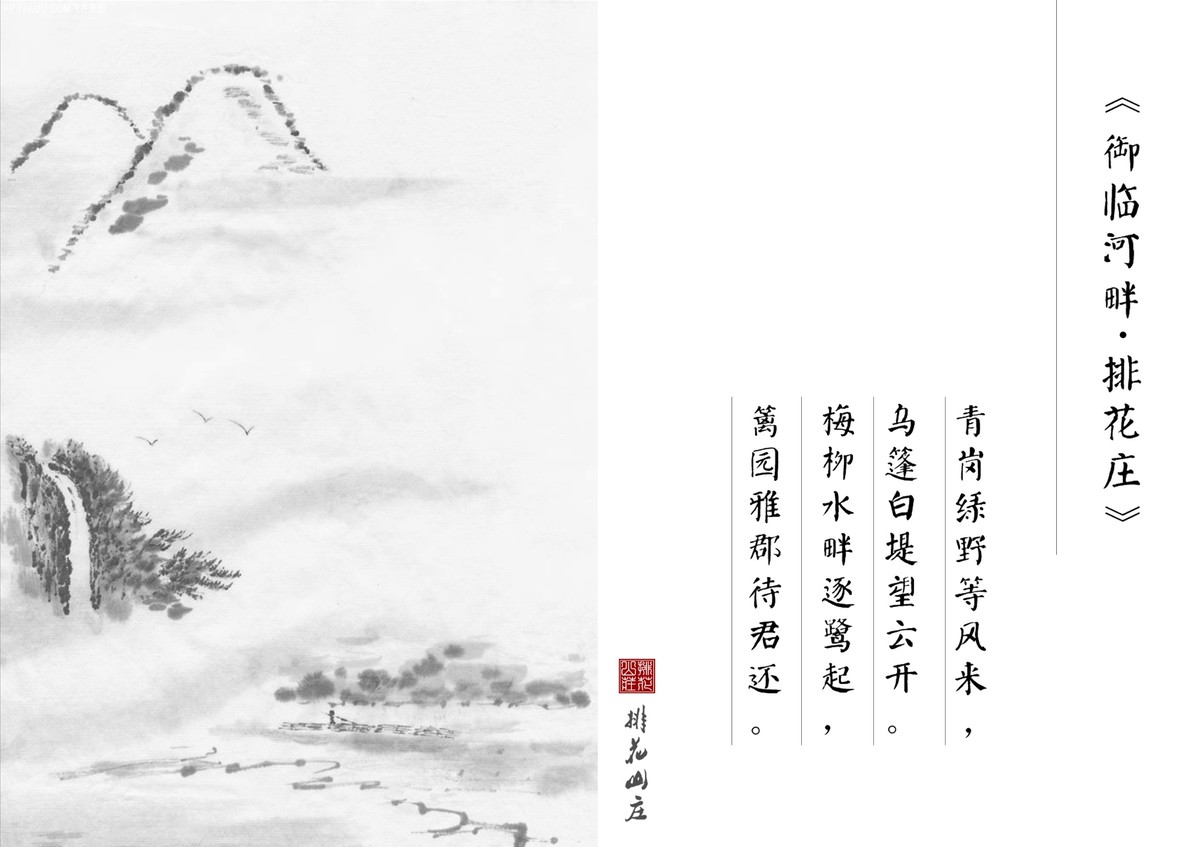 《御临河畔·排花庄》
青岗绿野等风来，
乌篷白堤望云开。
梅柳水畔逐鹭起，
篱园雅郡待君还。
排花山庄
排花山庄